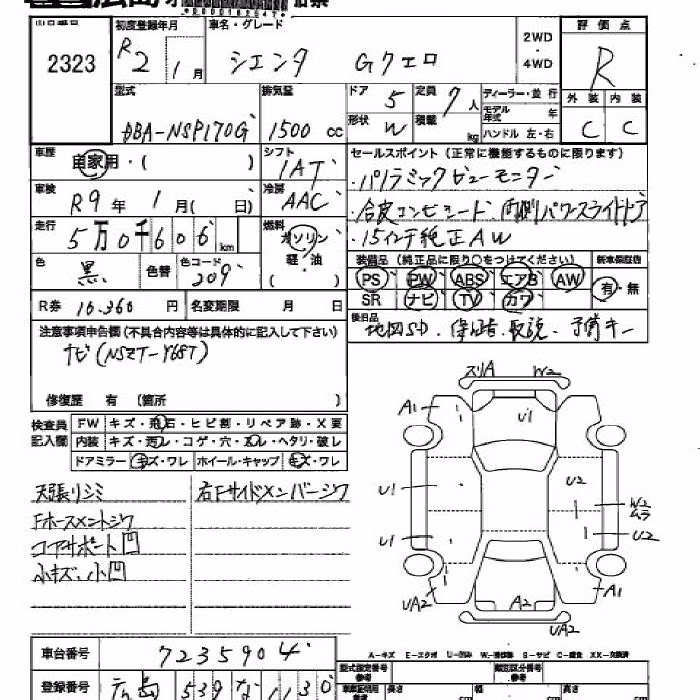 2323
初度登録年月
R2 1月
車名・グレード
シエンタ Gクエロ
2WD
・
4WD
評価点
R
外装 内装
C C
型式
DBA-NSP170G
排気量
1500 cc
ドア 5
定員 7人
形状 W
積載 kg
ディーラー・並行
モデル年式 年
ハンドル 左・右
車歴 自家用・( )
シフト
IAT
車検 R9年 1月( 日)
冷房
AAC
走行 5万0千606km
燃料
ガソリン
軽・油
( )
色 黒
色替
色コード 209
セールスポイント(正常に機能するものに限ります)
・パノラミックビューモニター
・合皮コンビシート 両側パワースライドドア
・15インチ純正AW
装備品(純正品に限り○をつけてください) 新車保証書
PS PW ABS エアB AW
SR ナビ TV カワ
有・無
R券 10.360円
名変期限 月 日
後日品
地図SD. 保証書. 取説. 予備キー
注意事項申告欄(不具合内容等は具体的に記入して下さい)
ナビ(NSZT-Y68T)
修復歴 有 (箇所 )
検査員記入欄
FW キズ・飛石・ヒビ割・リペア跡・X要
内装 キズ・汚レ・コゲ・穴・スレ・ヘタリ・破レ
ドアミラー キズ・ワレ ホイール・キャップ キズ・ワレ
天張リシミ
右Fサイドメンバーシワ
Fホースメントシワ
コアサポート凹
小キズ、小凹
スリA W2
A1 U1
U1 U2 W2 ムラ
U1 U2
UA2 A2 A1
UA2
A-キズ E-エクボ U-凹み W-補修跡 S-サビ C-腐食 XX-交換済
車台番号 7235904
登録番号 広島 539 な 1130
型式指定番号
類別区分番号
長さ cm 幅 cm 高さ cm